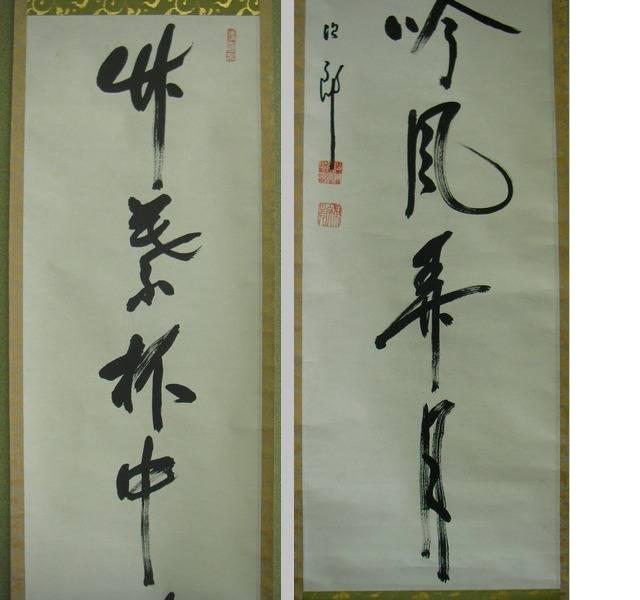 竹葉杯中
吟風弄月
郎